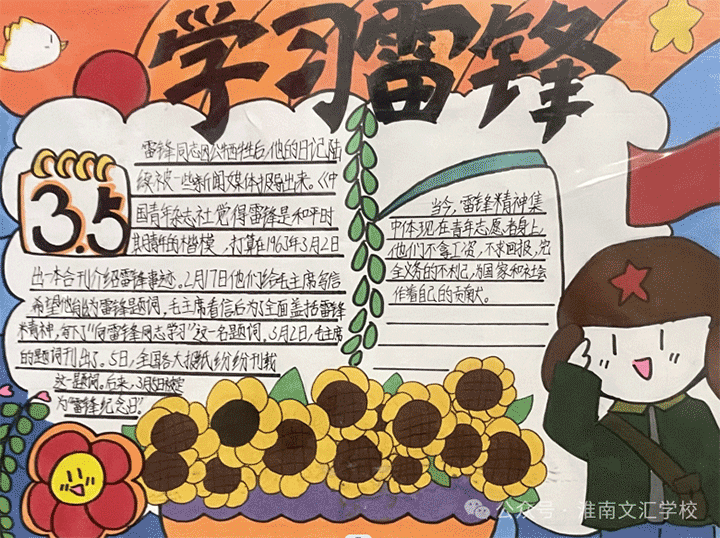 学习雷锋
3.5
雷锋同志因公牺牲后他的日记陆
续被一些新闻媒体报导出来。《中
国青年杂志社觉得雷锋是和平时
期青年的楷模，打算在1963年3月2日
出一本合刊介绍雷锋事迹。2月17日他们给毛主席写信
希望他能为雷锋题词，毛主席看信后为了全面盖括雷锋
精神，写下了"向雷锋同志学习"这一名题词。3月2日，毛主席
的题词刊出了。5日，全国各大报纸纷纷刊载
这一题词。后来，3月5日被定
为"雷锋纪念日"。
当今，雷锋精神集
中体现在青年志愿者身上，
他们不拿工资，不求回报，完
全义务的不利己，为国家和社会
作着自己的贡献。
公众号·淮南文汇学校